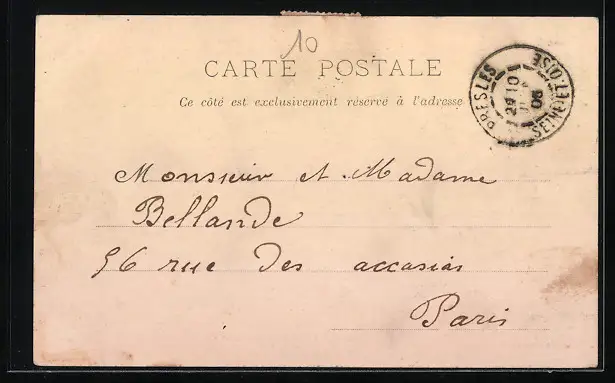 10
CARTE POSTALE
Ce côté est exclusivement réservé à l'adresse
PRESLES
SEINE-ET-OISE
10
05
Monsieur et Madame
Bellande
56 rue des accasias
Paris